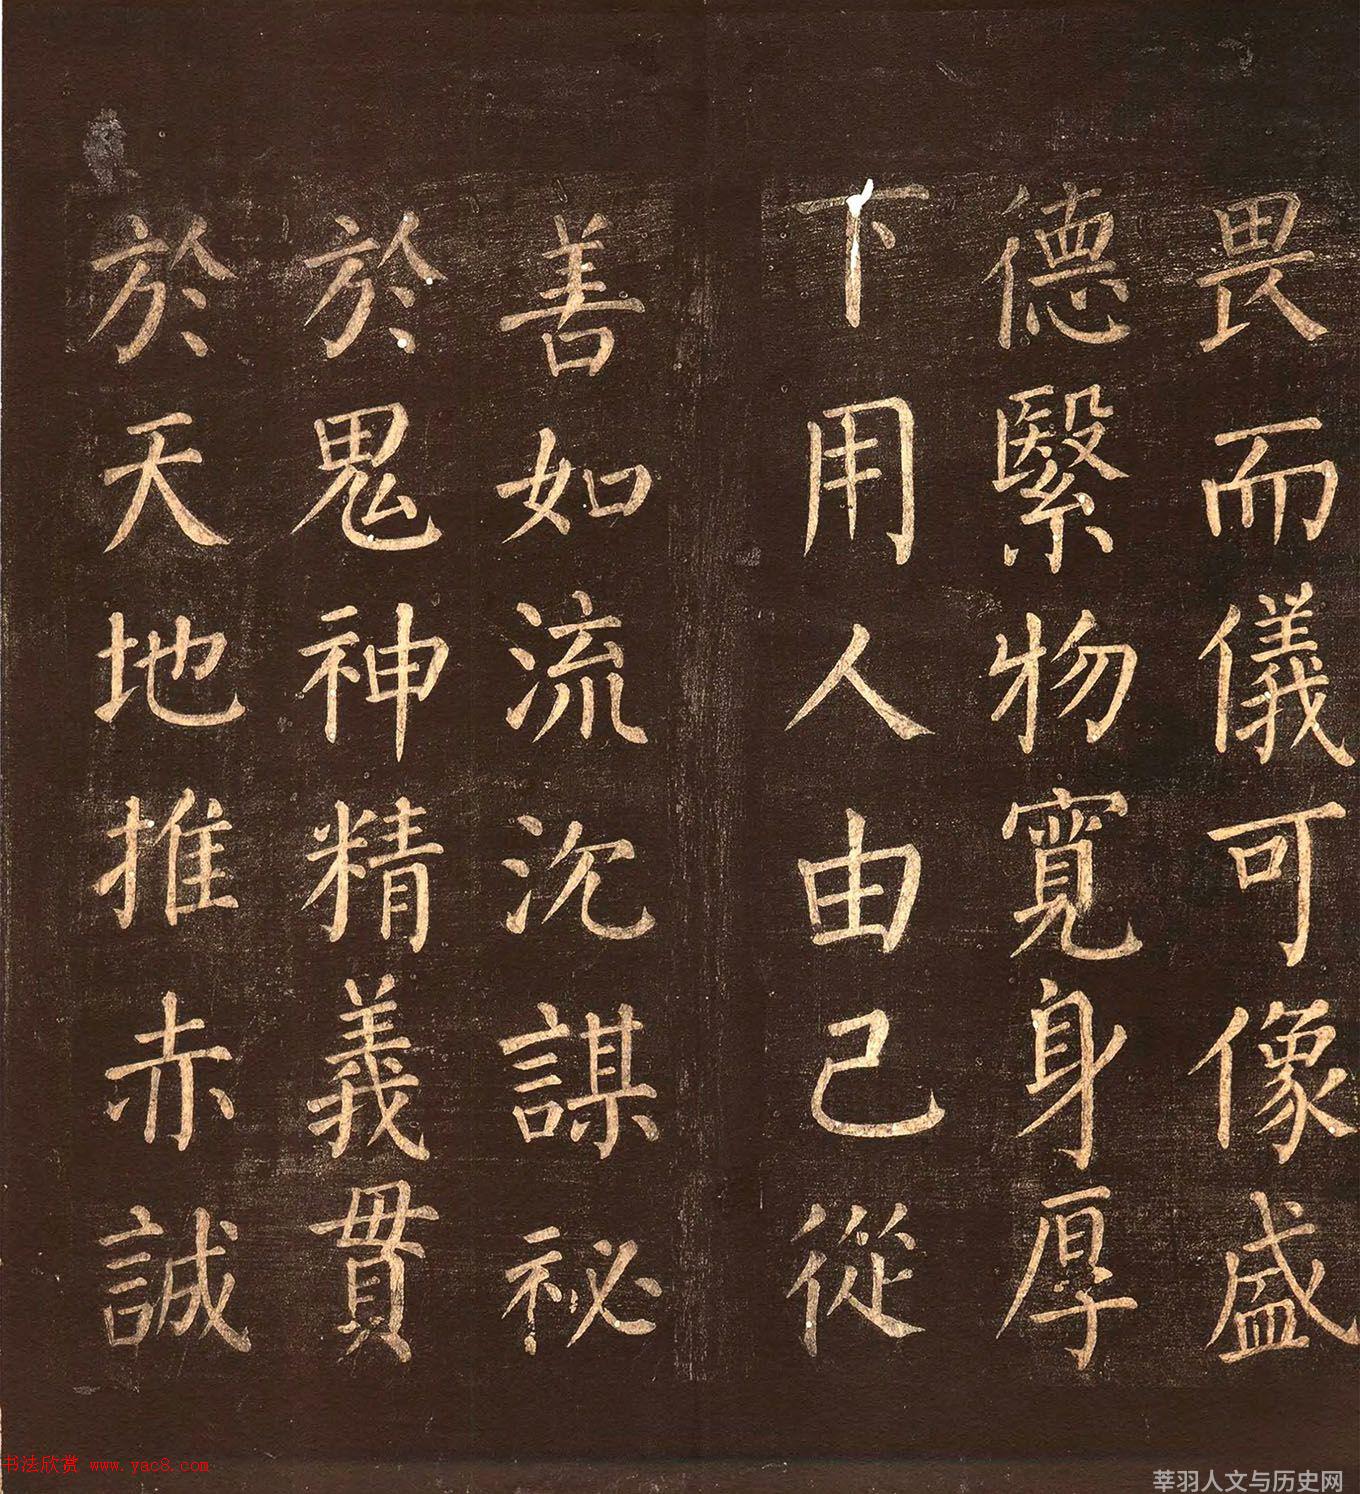 畏而儀可像盛
德繄物寬身厚
下用人由己從
善如流沉謀祕
於鬼神精義貫
於天地推赤誠
书法欣赏 www.yac8.com
莘羽人文与历史网